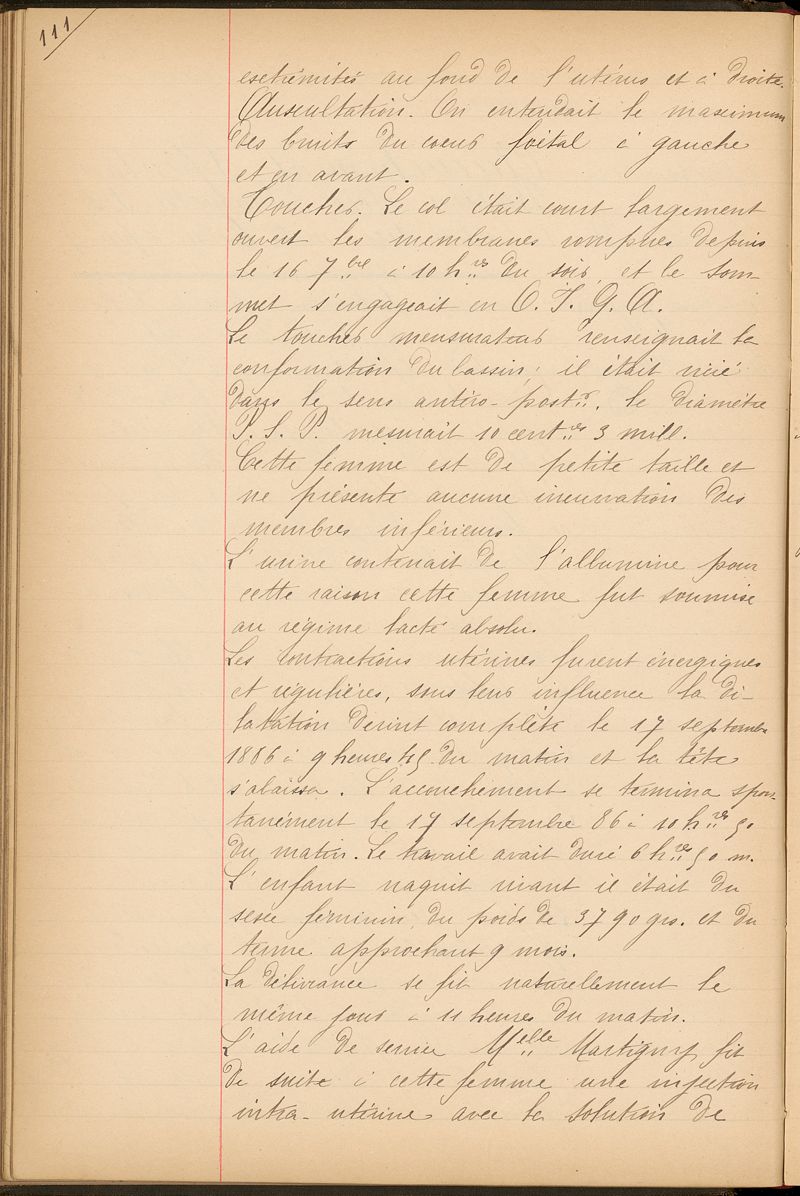 111
extrémités au fond de l'utérus et à droite.
Auscultation. On entendait le maximum
des bruits du coeur foétal à gauche
et en avant.
Toucher. Le col était court largement
ouvert les membranes rompues depuis
le 16 7bre à 10 hres du soir, et le som-
met s'engageait en O. I. G. A.
Le toucher mensurateur renseignait la
conformation du bassin; il était vicié
dans le sens antéro-postr. le diamètre
P. S. P. mesurait 10 centres 3 mill.
Cette femme est de petite taille et
ne présente aucune incurvation des
membres inférieurs.
L'urine contenait de l'allumine pour
cette raison cette femme fut soumise
au régime lacté absolu.
Les contractions utérines furent énergiques
et régulières, sous leur influence la di-
latation devint complète le 17 septembre
1886 à 9 heures du matin et la tête
s'abaissa. L'accouchement se termina spon-
tanément le 17 septembre 86 à 10 hres 50
du matin. Le travail avait duré 6 hres 50 m.
L'enfant naquit vivant il était du
sexe féminin, du poids de 3790 grs. et du
terme approchant 9 mois.
La délivrance se fit naturellement le
même jour à 11 heures du matin.
L'aide de service Melle Martigny fit
de suite à cette femme une injection
intra-utérine avec la solution de